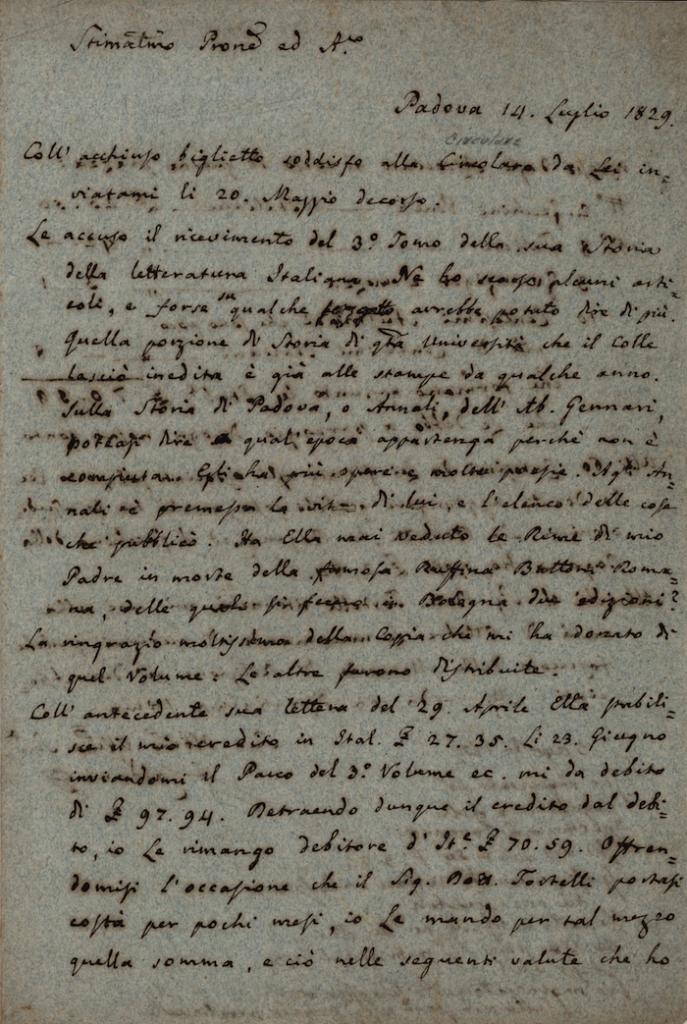 Stimatmo Prone ed Aco
Padova 14. Luglio 1829.
circolare
Coll' acchiuso biglietto soddisfo alla Circolare da Lei in=
viatami li 20. Maggio decorso.
Le accuso il ricevimento del 3º Tomo della sua Storia
della letteratura Italiana. Ne ho scorsi alcuni arti=
coli, e forse su qualche avrebbe potuto dire di più.
Quella porzione di Storia di qta Università che il Colle
lasciò inedita è già alle stampe da qualche anno.
Sulla Storia di Padova, o Annali, dell' Ab. Gennari,
dire a qual epoca appartenga perchè non è
compiuta. Egli ha più opere e molte poesie. Agli An=
nali è premessa la vita di lui, e l'elenco delle cose
che pubblicò. Ha Ella mai veduto le Rime di mio
Padre in morte della famosa Ruffina Battoni Roma=
na, delle quali si fecero in Bologna due edizioni?
La ringrazio moltissimo della Coppia che mi ha donato di
quel Volume: Le altre furono distribuite.
Coll' antecedente sua lettera del 29. Aprile Ella stabili=
sce il mio credito in Ital. £ 27. 35. Li 23. Giugno
inviandomi il Pacco del 3º Volume ec. mi da debito
di £ 97. 94. Detraendo dunque il credito dal debi=
to, io Le rimango debitore d' Ite £ 70. 59. Offren=
domisi l'occasione che il Sig. Dott. Tostelli portasi
costà per pochi mesi, io Le mando per tal mezzo
quella somma, e ciò nelle seguenti valute che ho